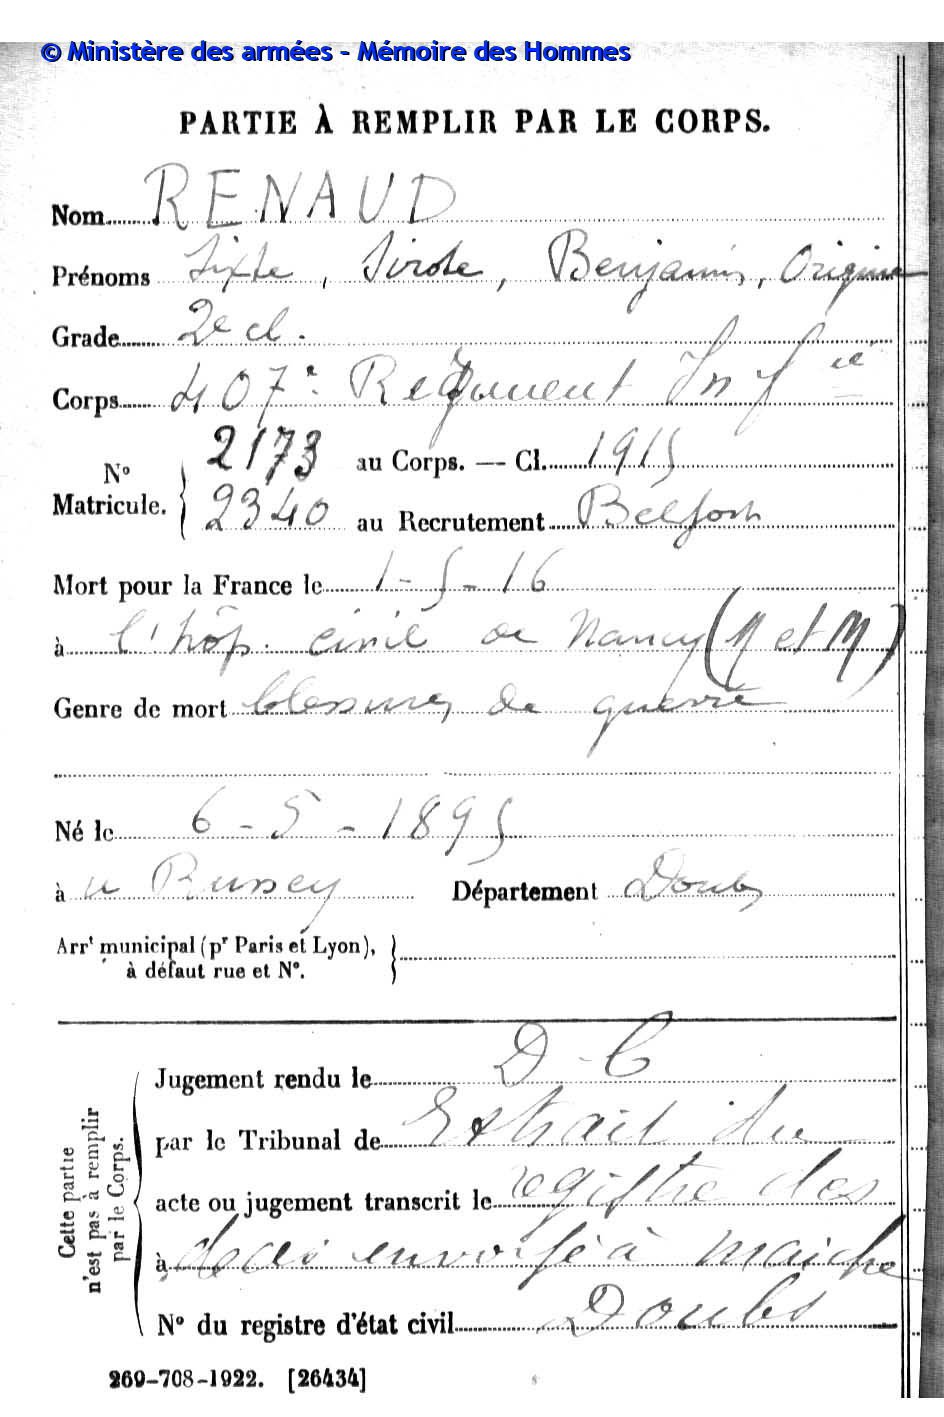 © Ministère des armées - Mémoire des Hommes
PARTIE À REMPLIR PAR LE CORPS.
Nom RENAUD
Prénoms Sixte, Sirote, Benjamin, Origène
Grade 2e cl.
Corps 407e Régiment Infie
No Matricule. 2173 au Corps. — Cl. 1915
2340 au Recrutement Belfort
Mort pour la France le 1-5-16
à l'hôp. civil de Nancy (M et M)
Genre de mort blessures de guerre
Né le 6-5-1895
à u Russey Département Doubs
Arrt municipal (pr Paris et Lyon),
à défaut rue et No.
Cette partie
n'est pas à remplir
par le Corps.
Jugement rendu le D-C
par le Tribunal de Extrait du
acte ou jugement transcrit le registre des
à décès envoyé à Maiche
No du registre d'état civil Doubs
269-708-1922. [26434]